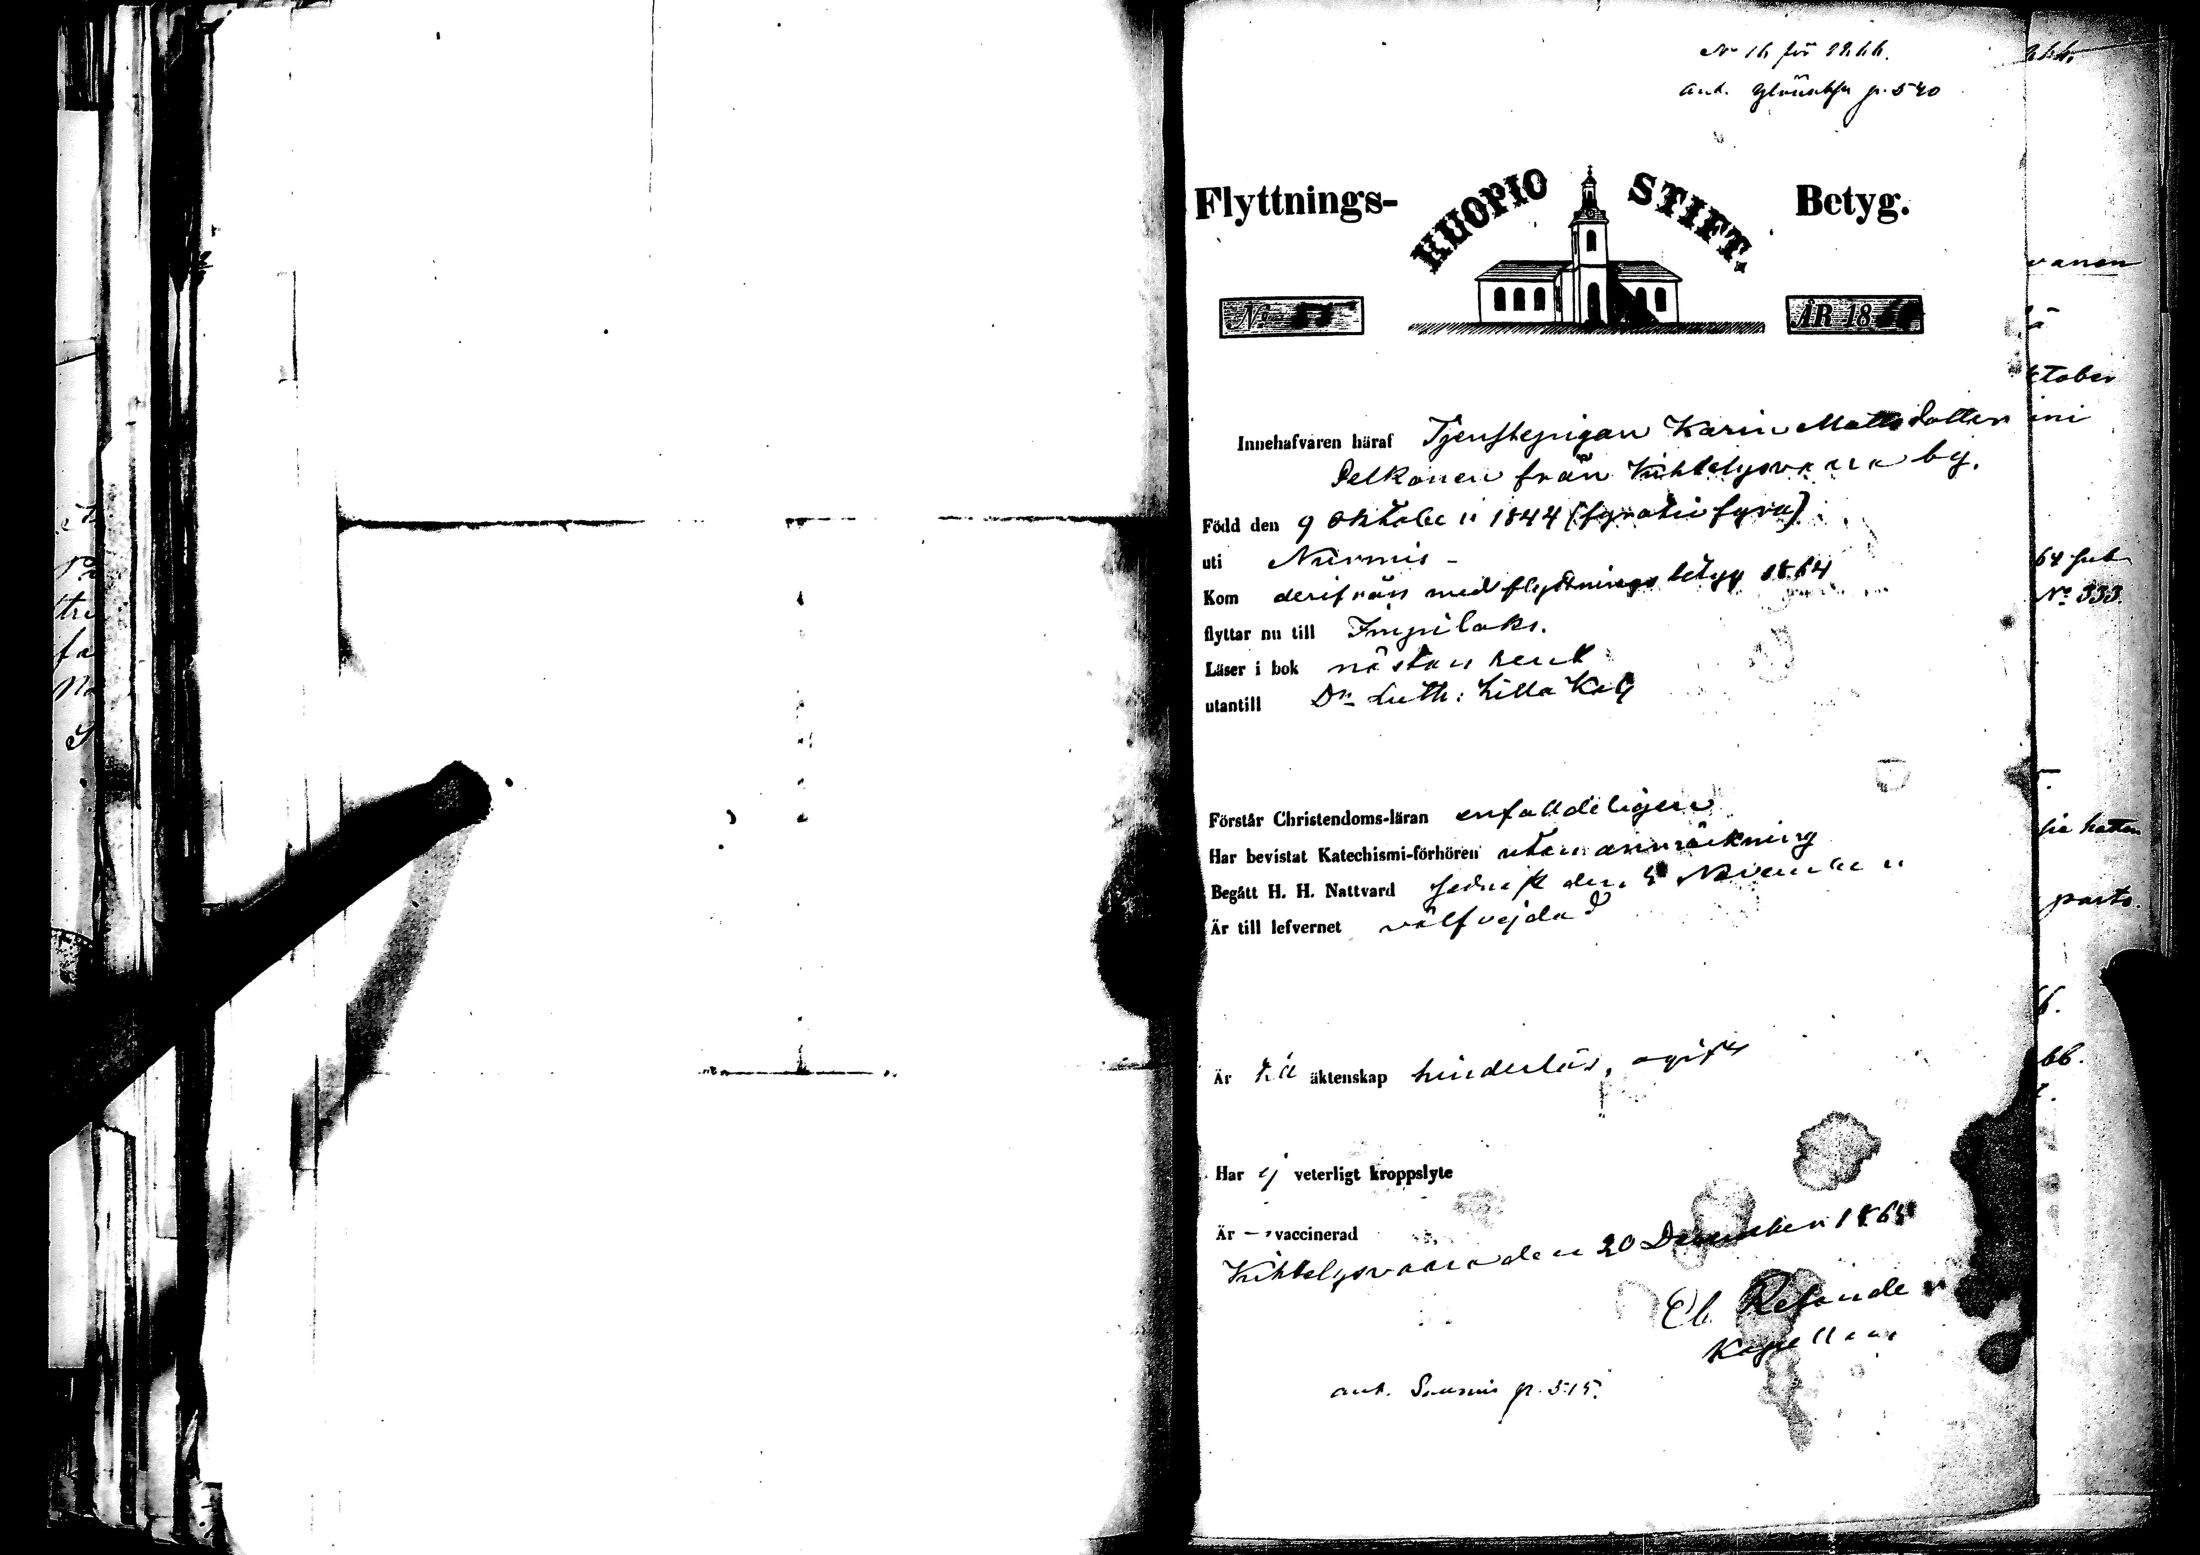 No 16 för 1866.
ant. p. 540
Flyttnings- KUOPIO STIFT. Betyg.
No ÅR 18
Innehafvaren häraf Tjenstepigan Karin Mattsdotter
Pelkonen från Kihtelysvaara by.
Född den 9 Oktober 1844 (fyratiofyra)
uti Nurmis -
Kom derifrån med flyttningsbetyg 1864
flyttar nu till Impilaks.
Läser i bok nästan rent
utantill Dr Luth: Lilla Kat
Förstår Christendoms-läran enfaldeligen
Har bevistat Katechismi-förhören utan anmärkning
Begått H. H. Nattvard sednast den 5 November
Är till lefvernet välfrejdad
Är till äktenskap hinderlös, ogift
Har ej veterligt kroppslyte
Är — vaccinerad
Kihtelysvaara den 20 December 1865
Kapellan
ant. p. 515.
vanen
ktober
ini
64 sub
No 333.